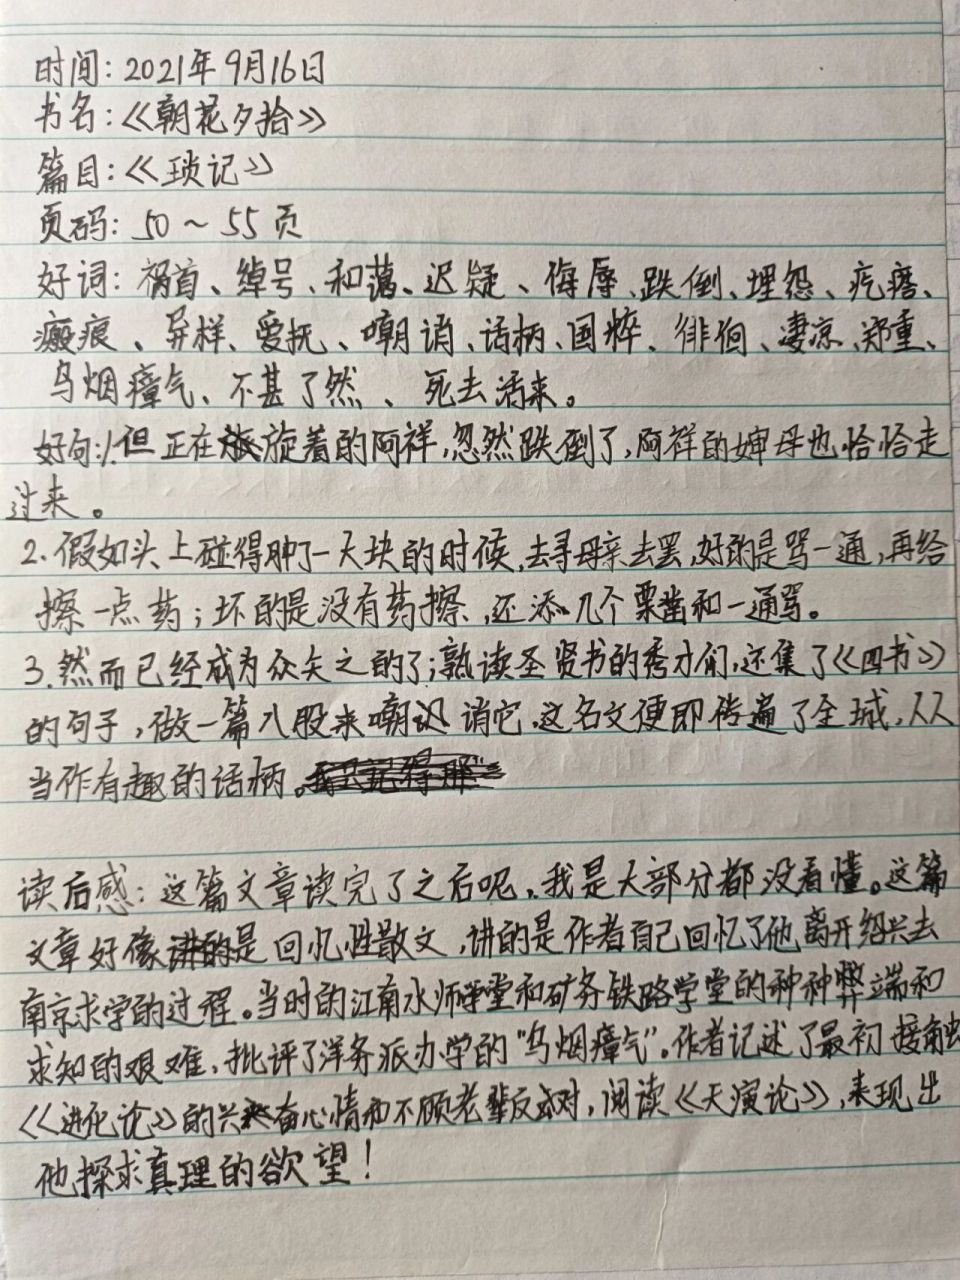 时间：2021年9月16日
书名：《朝花夕拾》
篇目：《琐记》
页码：50～55页
好词：祸首、绰号、和蔼、迟疑、侮辱、跌倒、埋怨、疙瘩、
瘢痕、异样、爱抚、嘲诮、话柄、国粹、徘徊、凄凉、郑重、
乌烟瘴气、不甚了然、死去活来。
好句：1.但正在旋着的阿祥，忽然跌倒了，阿祥的婶母也恰恰走
过来。
2.假如头上碰得肿了一大块的时候，去寻母亲去罢，好的是骂一通，再给
擦一点药；坏的是没有药擦，还添几个栗凿和一通骂。
3.然而已经成为众矢之的了；熟读圣贤书的秀才们，还集了《四书》
的句子，做一篇八股来嘲诮它，这名文便即传遍了全城，人人
当作有趣的话柄。
读后感：这篇文章读完了之后呢，我是大部分都没看懂。这篇
文章好像是回忆性散文，讲的是作者自己回忆了他离开绍兴去
南京求学的过程。当时的江南水师学堂和矿务铁路学堂的种种弊端和
求知的艰难，批评了洋务派办学的"乌烟瘴气"。作者记述了最初接触
《进化论》的兴奋心情和不顾老辈反对，阅读《天演论》，表现出
他探求真理的欲望！